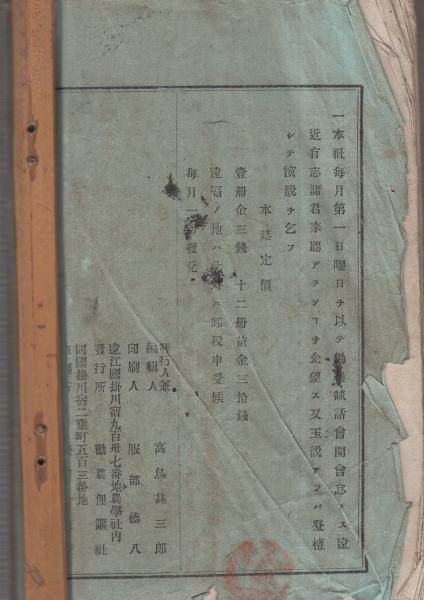 一本社每月第一日曜日ヲ以テ勸農談話會開會忽ヲス遠
近有志諸君來聽アランヿヲ企望ス又玉說アラバ登壇
シテ演說ヲ乞フ
本誌定價
壹册金三錢 十二册前金三拾錢
遠隔ノ地ハ此外ニ郵稅申受候
每月一 發兌
發行人兼
編輯人 高鳥甚三郎
印刷人 服部德八
遠江國掛川宿九百卅七番地農學社內
發行所 勸農俚謳社
同國掛川宿二瀬町五百三番地